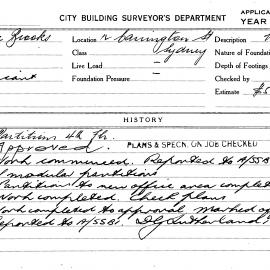 CITY BUILDING SURVEYOR'S DEPARTMENT
APPLICA
YEAR
Brooks Location Carrington St Description
Class Sydney Nature of Foundation
Live Load – Depth of Footings
Foundation Pressure – Checked by
Estimate £5
HISTORY
Partitions 4th Flr.
Approved. PLANS & SPECN. ON JOB CHECKED
Work commenced. Reported to A/SSB
modular partitions
Partitions to new office area complete
Work completed. Check plans
Work completed to approval marked o
Reported to A/SSB. Sutherland